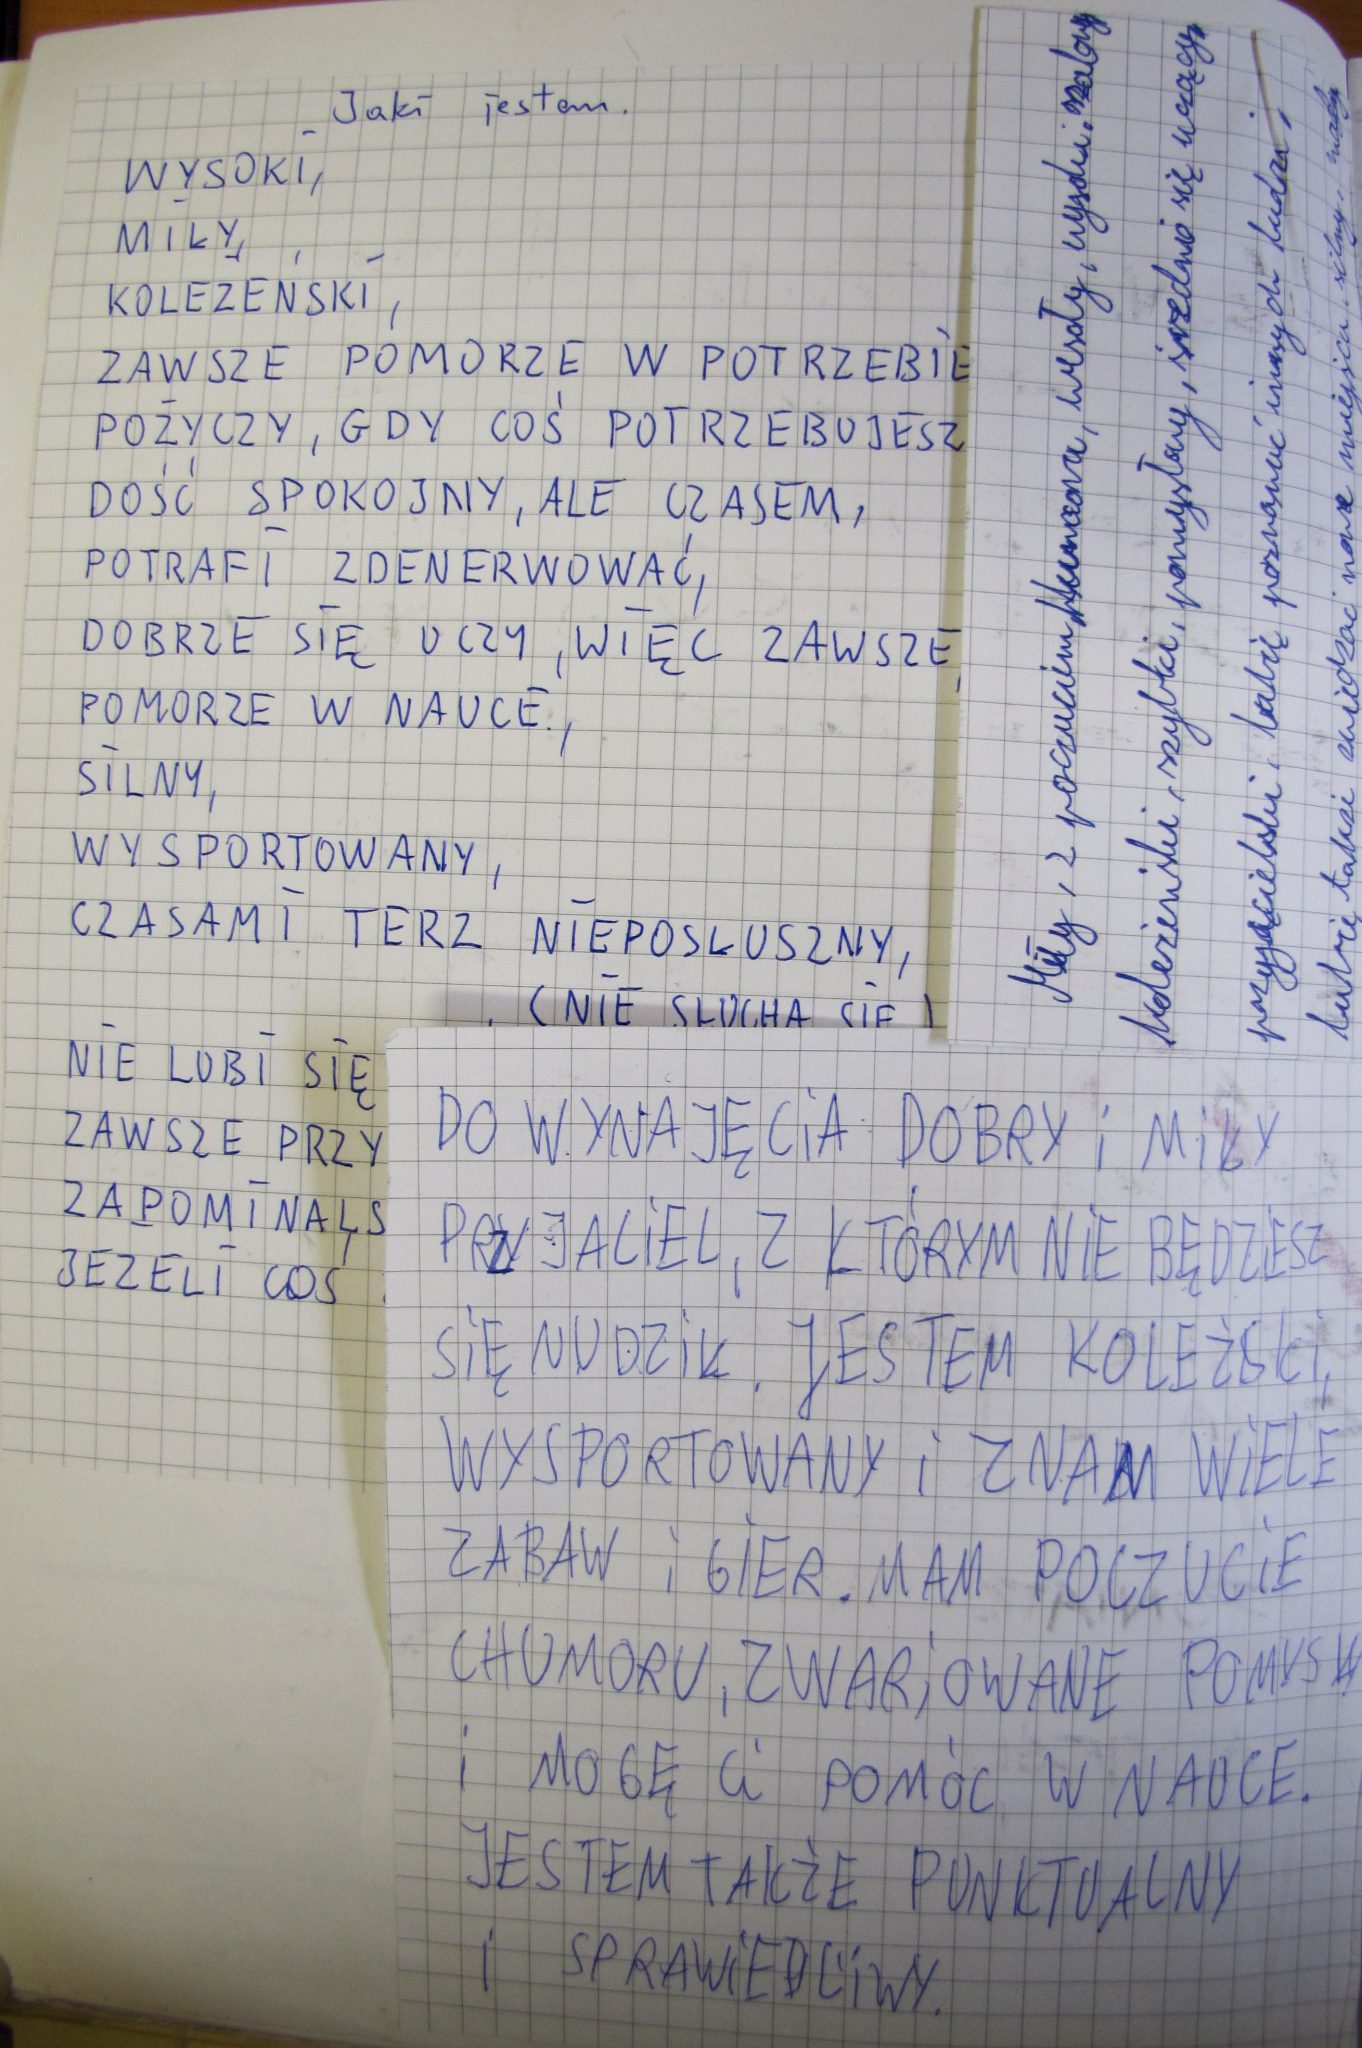 Jaki jestem.
WYSOKI,
MIŁY,
KOLEŻEŃSKI,
ZAWSZE POMORZE W POTRZEBIE,
POŻYCZY, GDY COŚ POTRZEBUJESZ
DOŚĆ SPOKOJNY, ALE CZASEM,
POTRAFI ZDENERWOWAĆ,
DOBRZE SIĘ UCZY, WIĘC ZAWSZE,
POMORZE W NAUCE.,
SILNY,
WYSPORTOWANY,
CZASAMI TERZ NIEPOSŁUSZNY,
(NIE SŁUCHA SIĘ)
NIE LUBI SIĘ
ZAWSZE PRZY
ZAPOMINALS
JEZELI COS
Miły, z poczuciem humoru, wesoły, wysoki,
koleżeński, szybki, pomysłowy, średnio się uczący,
przyjacielski, lubię poznawać innych ludzi,
lubię także zwiedzać nowe miejsca, silny,
DO WYNAJĘCIA DOBRY i MiŁY
PRZYJACIEL, Z KTÓRYM NIE BĘDZIESZ
SIĘ NUDZIŁ. JESTEM KOLEŻSKI,
WYSPORTOWANY i ZNAM WIELE
ZABAW i GIER. MAM POCZUCIE
CHUMORU, ZWARJOWANE POMYSŁY
i MOGĘ CI POMÓC W NAUCE.
JESTEM TAKŻE PUNKTUALNY
i SPRAWIEDLIWY.